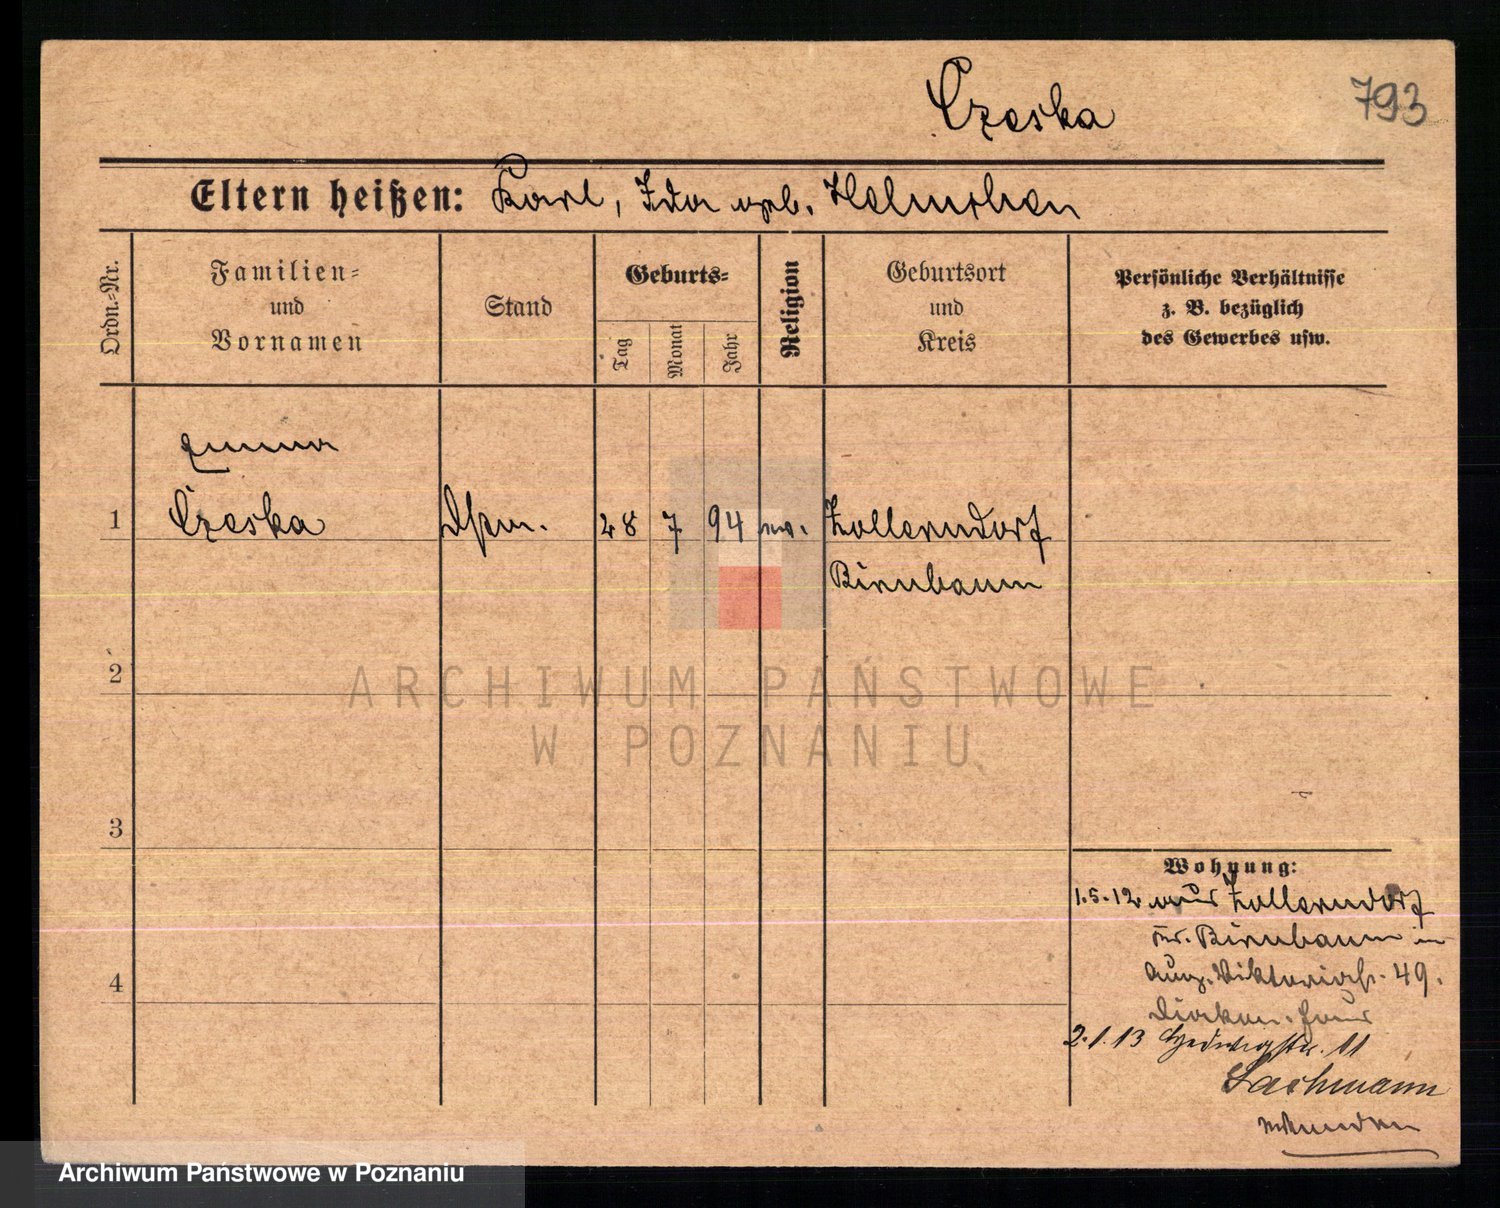 Czeska
793
Eltern heißen: Karl, Ida geb. Helmchen
Ordn.=Nr.
Familien=
und
Vornamen
Stand
Geburts=
Tag
Monat
Jahr
Religion
Geburtsort
und
Kreis
Persönliche Verhältnisse
z. B. bezüglich
des Gewerbes usw.
Emma
1 Czeska 28 7 94 ev. Zollerndorf
Birnbaum
2
3
4
Wohnung:
1.5.12 aus Zollerndorf
Kr. Birnbaum in
Aug. Viktoriastr. 49.
Diakon. Haus
2.1.13 Hedwigstr. 11
ARCHIWUM PAŃSTWOWE
W POZNANIU
Archiwum Państwowe w Poznaniu